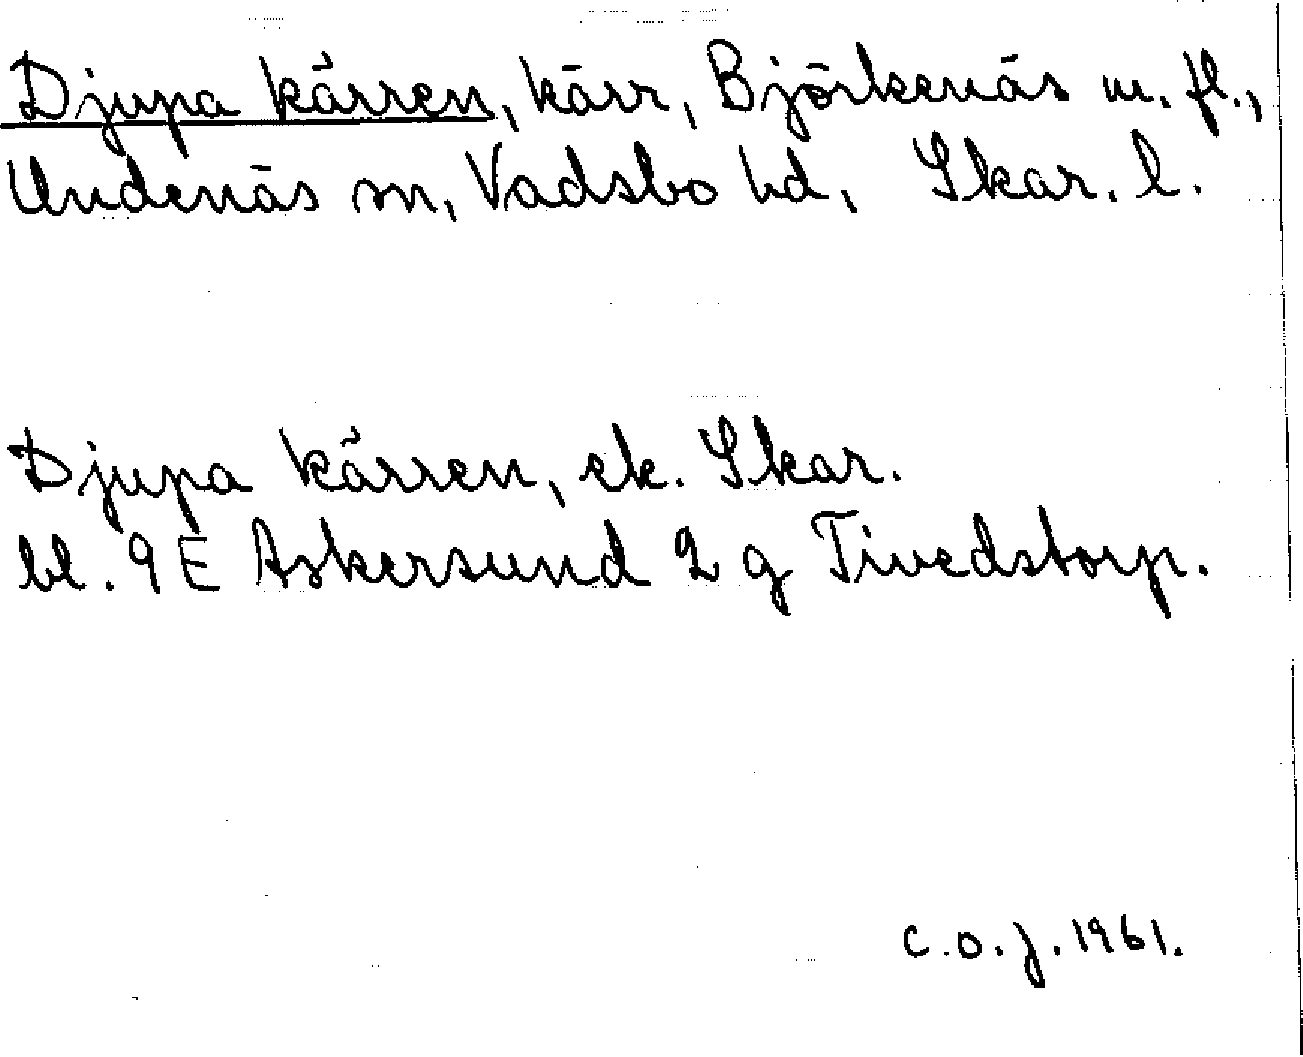 Djupa kärren, kärr, Björkenäs m. fl.,
Undenäs sn, Vadsbo hd, Skar. l.
Djupa kärren, ek. Skar.
bl. 9 E Askersund 2 g Tivedstorp.
C.O.J. 1961.